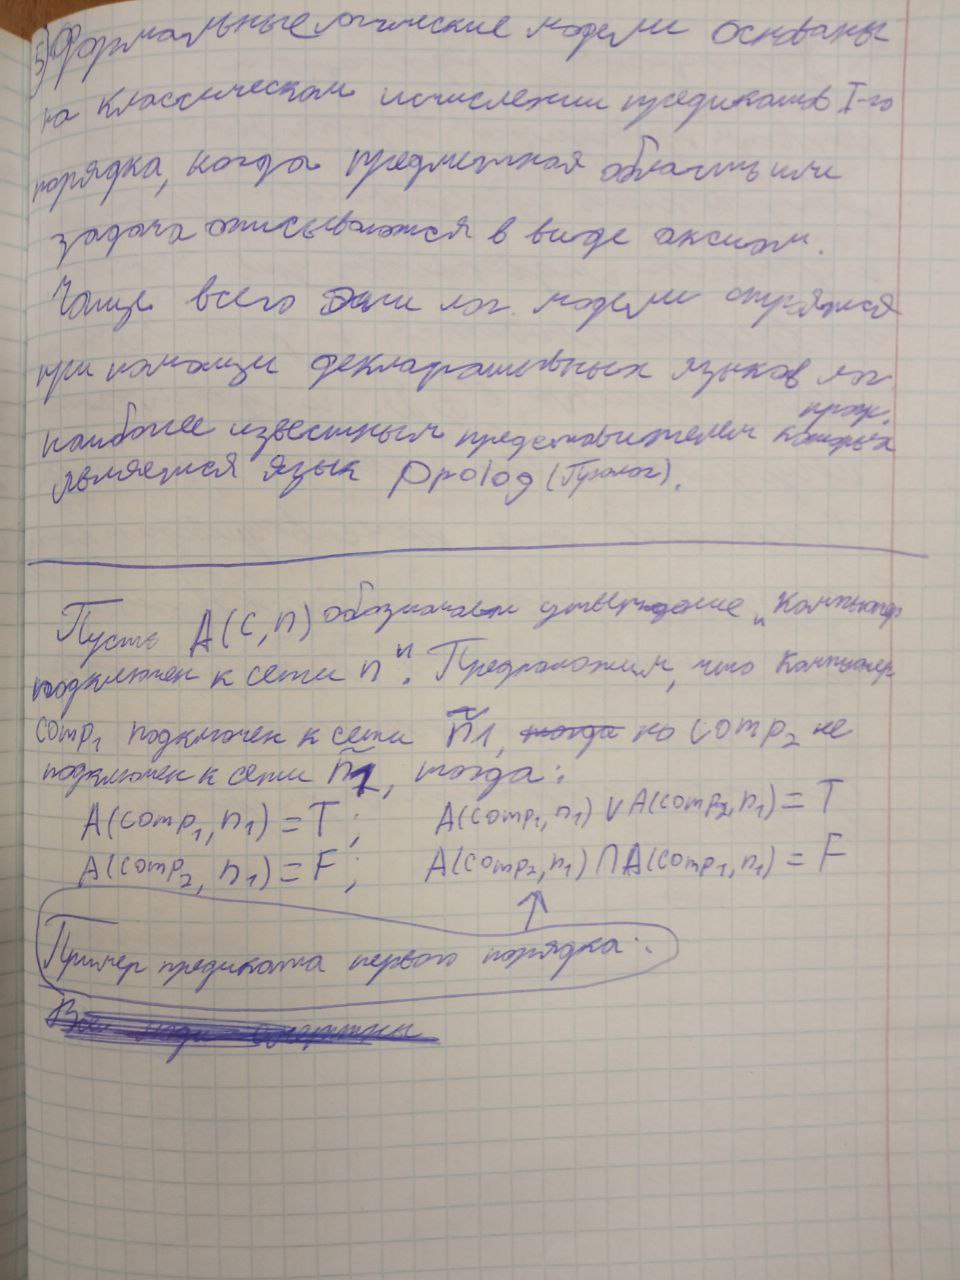 5) Формальные логические модели основаны
на классическом исчислении предикатов I-го
порядка, когда предметная область или
задача описываются в виде аксиом.
Чаще всего эти лог. модели строятся
при помощи декларативных языков лог.
прогр.
наиболее известным представителем которых
является язык Prolog (Пролог).
Пусть A(c,n) обозначает утверждение „Компьютер
подключен к сети n". Предположим, что компьютер
comp₁ подключен к сети n1, тогда но comp₂ не
подключен к сети n1, тогда:
A(comp₁, n₁) = T; A(comp₁, n₁) ∨ A(comp₂, n₁) = T
A(comp₂, n₁) = F; A(comp₂, n₁) ∩ A(comp₁, n₁) = F
Пример предиката первого порядка:
Все люди смертны